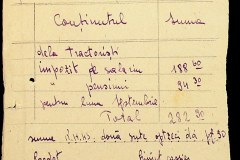 Conținutul Suma
dela tractoriști
impozit de salarii 188 60
" pensiuni 94 30
pentru luna Septembrie
Total 282 90
suma d.
două sute optzeci